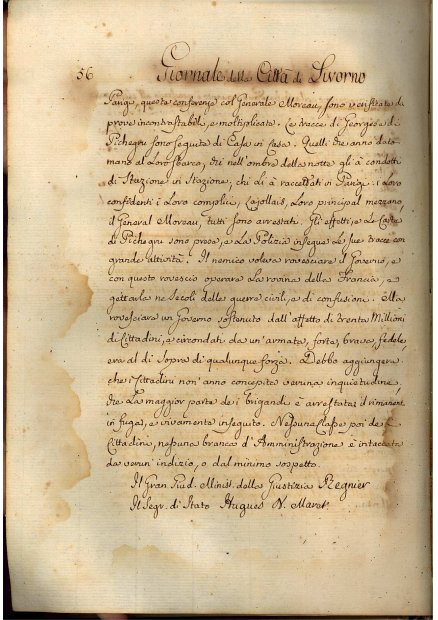 56
Giornale della Città di Livorno
Parigi, queste conferenze col Generale Moreau, sono verificate da
prove incontrastabili, e moltiplicate. Le tracce di Georges e di
Pichegru sono seguite di Casa in casa. Quelli che anno dato
mano al loro sbarco, che nell'ombra della notte gli à condotti
di Stazione in Stazione, chi Li à raccettati in Parigi: i Loro
confidenti i Loro complici, Lajollais, Loro principal mezzano,
il General Moreau, tutti sono arrestati. Gli effetti, e Le Carte
di Pichegru sono prese, e La Polizia insegue Le sue tracce con
grande attività. Il nemico voleva rovesciare il Governo, e
con questo rovescio operare La rovina della Francia, e
gettarla ne Secoli delle guerre civili, e di confusione. Ma
rovesciare un Governo sostenuto dall'affetto di trenta Millioni
di Cittadini, e circondato da un'armata, forte, brava, fedele,
era al di sopra di qualunque forza. Debbo aggiungere
che i Cittadini non'anno concepita veruna inquietudine
che La maggior parte dei briganti è arrestata; il rimanente
in fuga, e vivamente inseguito. Nessuna Classe poi dei
Cittadini, nessuna branca d'Amministrazione è intaccata
da verun indizio, o dal minimo sospetto.
Il Gran Giud. Minist. della Giustizia Regnier
Il Segr. di Stato Hugues N. Maret